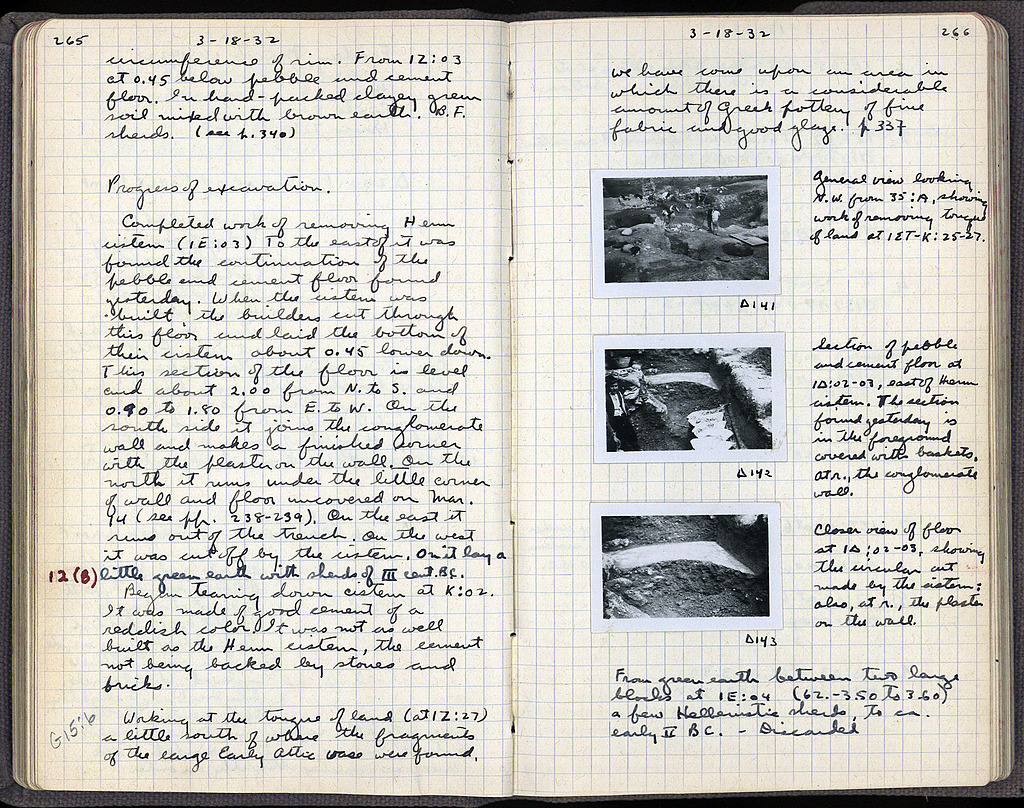 265
3-18-32
circumference of rim. From 1Z:03
at 0.45 below pebble and cement
floor. In hard-packed clayey green
soil mixed with brown earth. B.F.
sherds. (see p. 340)
Progress of excavation.
Completed work of removing Henn
cistern (1E:03) To the east of it was
found the continuation of the
pebble and cement floor found
yesterday. When the cistern was
built the builders cut through
this floor and laid the bottom of
their cistern about 0.45 lower down.
This section of the floor is level
and about 2.00 from N. to S. and
0.90 to 1.80 from E. to W. On the
south side it joins the conglomerate
wall and makes a finished corner
with the plaster on the wall. On the
north it runs under the little corner
of wall and floor uncovered on Mar.
14 (see pp. 238-239). On the east it
runs out of the trench. On the west
it was cut off by the cistern. On it lay a
12 (B) little green earth with sherds of III cent. B.C.
Began tearing down cistern at K:02.
It was made of good cement of a
reddish color. It was not as well
built as the Henn cistern, the cement
not being backed by stones and
bricks.
G15:6
Working at the tongue of land (at 1Z:27)
a little south of where the fragments
of the large Early Attic vase were found,
3-18-32
266
we have come upon an area in
which there is a considerable
amount of Greek pottery of fine
fabric and good glaze. p 337
General view looking
N.W. from 35:A, showing
work of removing tongue
of land at 1ET-K:25-27.
Δ141
Section of pebble
and cement floor at
1Δ:02-03, east of Henn
cistern. The section
found yesterday is
in the foreground
covered with baskets.
At r., the conglomerate
wall.
Δ142
Closer view of floor
at 1Δ:02-03, showing
the circular cut
made by the cistern:
also, at r., the plaster
on the wall.
Δ143
From green earth between two large
blocks at 1E:04 (62.-3.50 to 3.60)
a few Hellenistic sherds, to ca.
early II B.C. - Discarded